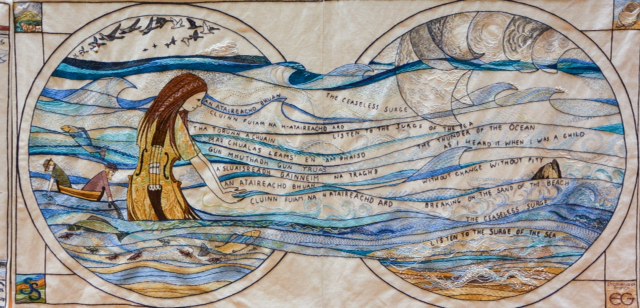 AN ATAIREACHD BHUAN
CLUINN FUAIM NA H-ATAIREACHD ARD
THA TORUNN A'CHUAIN
MAR CHUALAS LEAMS
GUN MHUTHADH GUN TRUAS
A SLUAISREADH GAINNEIMH NA TRAGHD
AN ATAIREACHD BHUAN
CLUINN FUAIM NA H-ATAIREACHD ARD
THE CEASELESS SURGE
LISTEN TO THE SURGE OF THE SEA
THE THUNDER OF THE OCEAN
AS I HEARD IT WHEN I WAS A CHILD
WITHOUT CHANGE WITHOUT PITY
BREAKING ON THE SAND OF THE BEACH
THE CEASELESS SURGE
LISTEN TO THE SURGE OF THE SEA